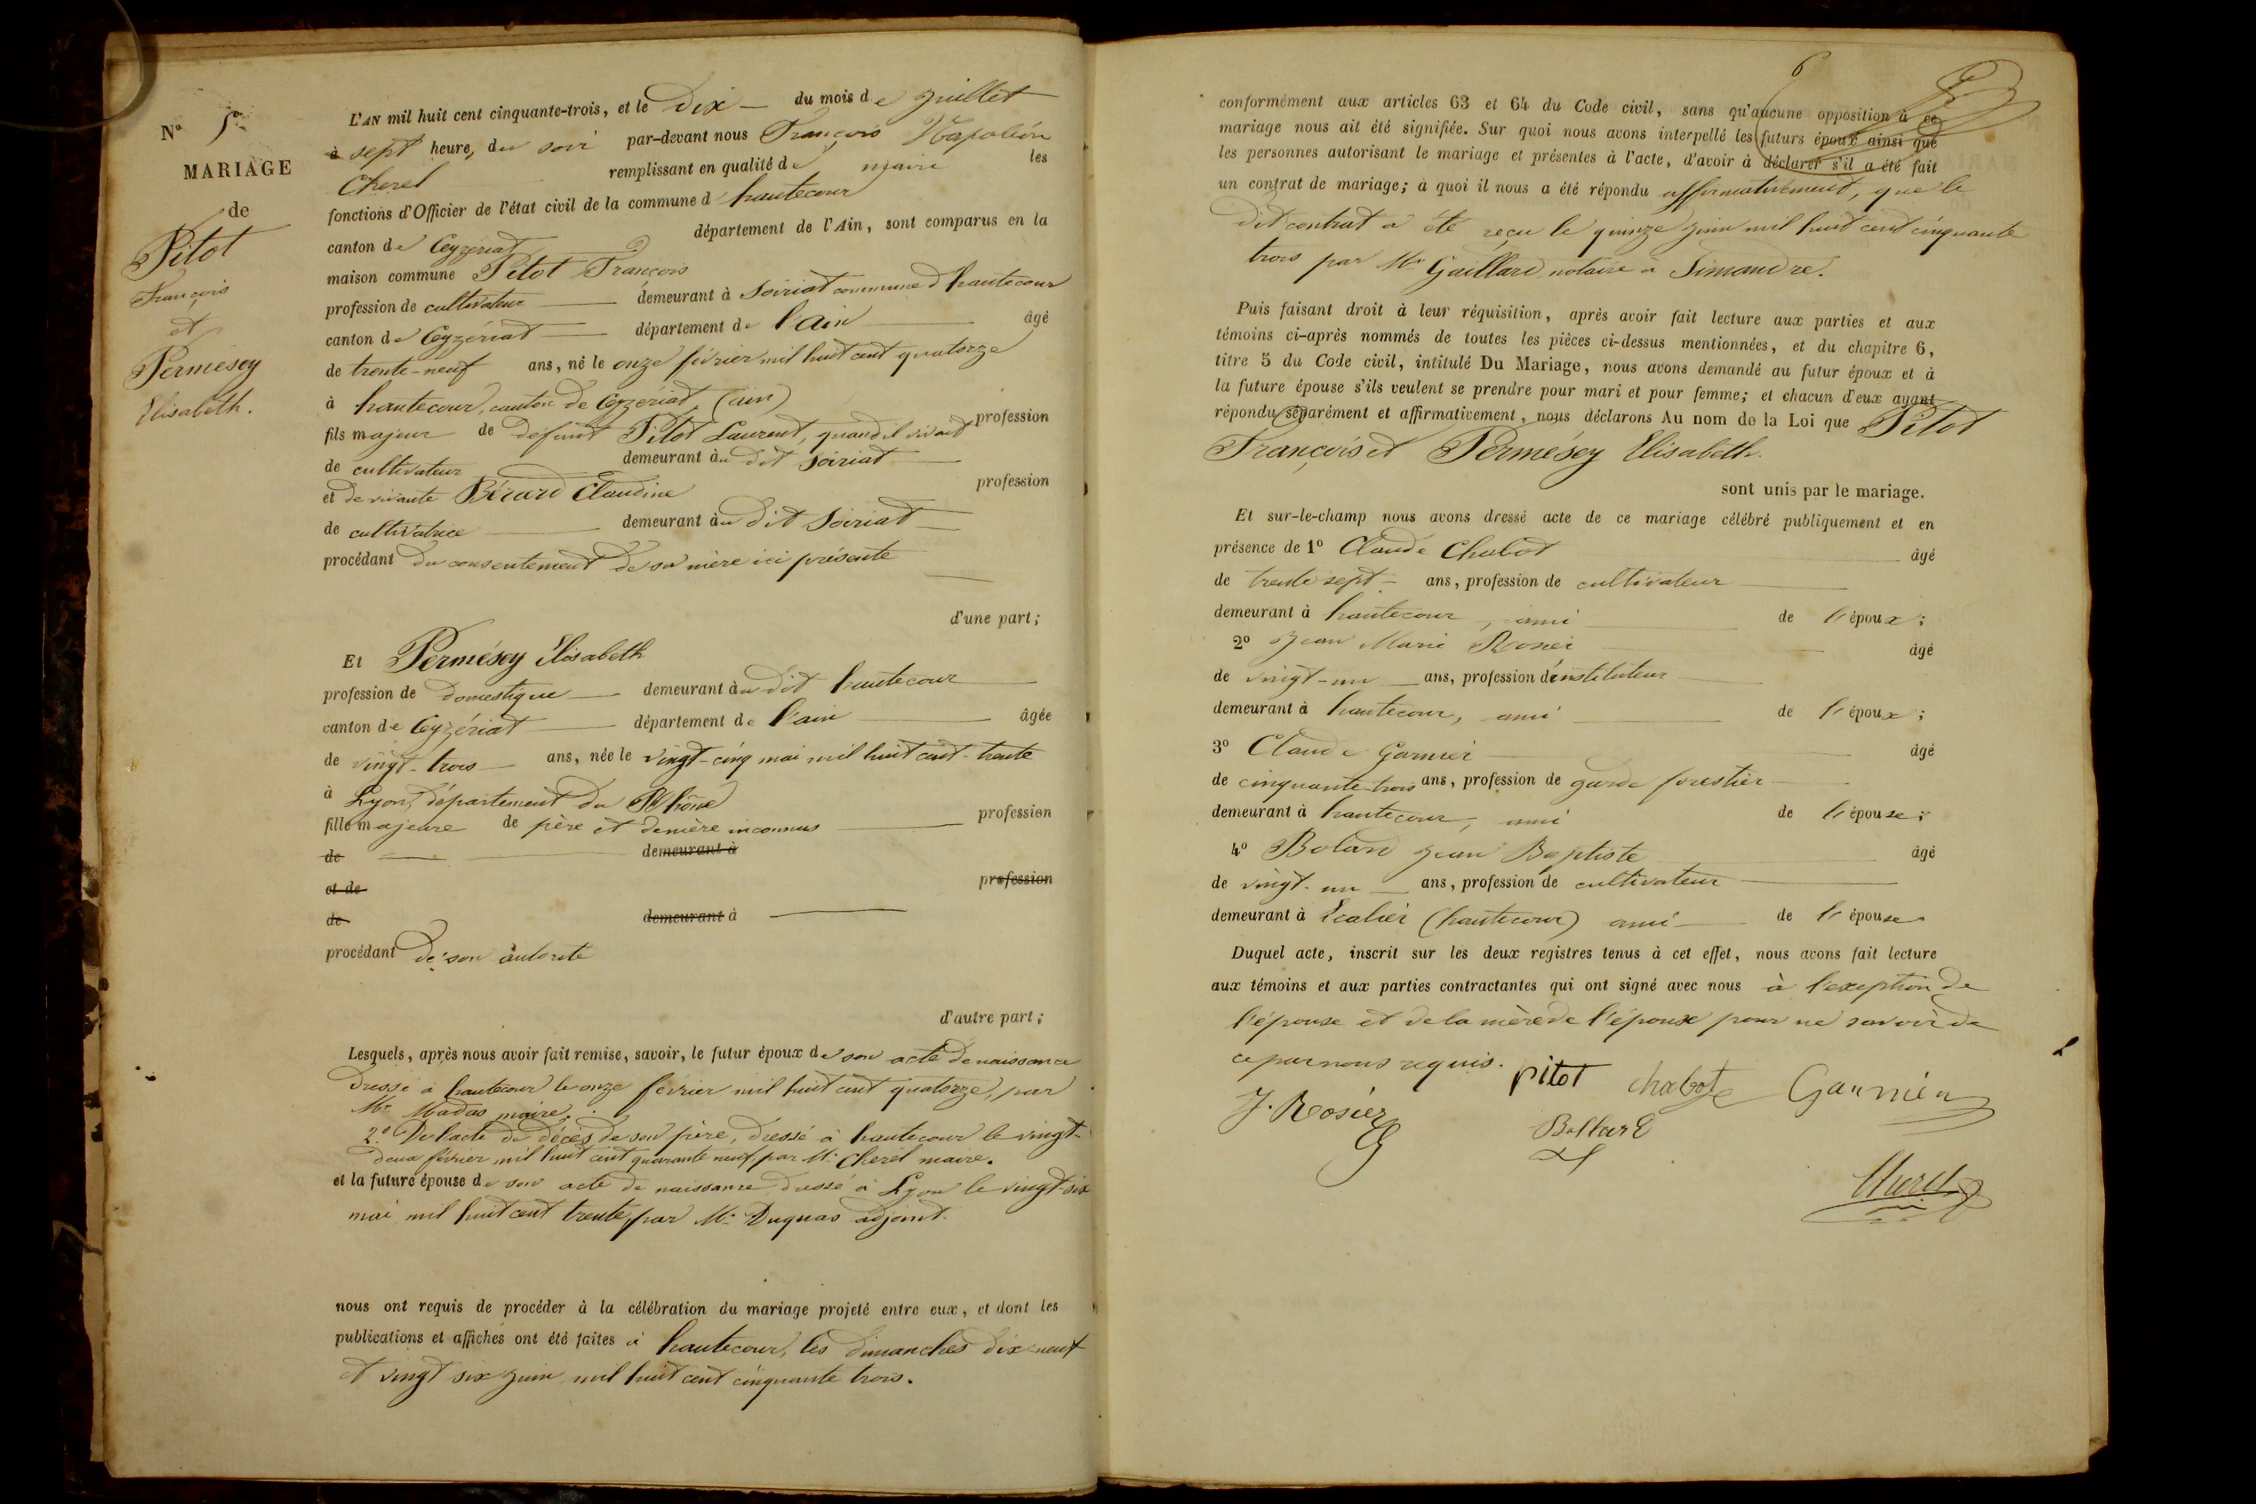 N° 5e
MARIAGE
de
Pitot
François
et
Permésey
Elisabeth.
L'AN mil huit cent cinquante-trois, et le Dix du mois de juillet
à sept heure, du soir par-devant nous François Napoléon
Cherel remplissant en qualité de maire les
fonctions d'Officier de l'état civil de la commune d hautecour
canton de Ceyzériat département de l'Ain, sont comparus en la
maison commune Pitot François
profession de cultivateur demeurant à Soiriat commune d hautecour
canton de Ceyzériat département de l'Ain âgé
de trente-neuf ans, né le onze février mil huit cent quatorze
à hautecour, canton de Ceyzériat, (ain)
fils majeur de défunt Pitot Laurent, quand il vivait profession
de cultivateur demeurant au dit Soiriat
et de vivante Bérard Claudine profession
de cultivatrice demeurant au dit Soiriat
procédant du consentement de sa mère ici présente
d'une part;
Et Permésey Elisabeth
profession de domestique demeurant au dit hautecour
canton de Ceyzériat département de l'ain âgée
de vingt-trois ans, née le vingt-cinq mai mil huit cent trente
à Lyon, département du Rhône
fille majeure de père et de mère inconnus profession
de demeurant à
et de profession
de demeurant à
procédant de son autorité
d'autre part;
Lesquels, après nous avoir fait remise, savoir, le futur époux de son acte de naissance
dressé à hautecour le onze février mil huit cent quatorze, par
Mr Madas maire.
2.° De l'acte de décès de son père, dressé à hautecour le vingt-
deux février mil huit cent quarante neuf, par Mr Cherel maire.
et la future épouse de son acte de naissance dressé à Lyon le vingt-six
mai mil huit cent trente, par Mr Duquas adjoint.
nous ont requis de procéder à la célébration du mariage projeté entre eux, et dont les
publications et affiches ont été faites à hautecour, les dimanches dix-neuf
et vingt six juin mil huit cent cinquante trois.
6
conformément aux articles 63 et 64 du Code civil, sans qu'aucune opposition à ce
mariage nous ait été signifiée. Sur quoi nous avons interpellé les futurs époux ainsi que
les personnes autorisant le mariage et présentes à l'acte, d'avoir à déclarer s'il a été fait
un contrat de mariage; à quoi il nous a été répondu affirmativement, que le
dit contrat a été reçu le quinze juin mil huit cent cinquante
trois par Mr Gaillard notaire à Simandre.
Puis faisant droit à leur réquisition, après avoir fait lecture aux parties et aux
témoins ci-après nommés de toutes les pièces ci-dessus mentionnées, et du chapitre 6,
titre 5 du Code civil, intitulé Du Mariage, nous avons demandé au futur époux et à
la future épouse s'ils veulent se prendre pour mari et pour femme; et chacun d'eux ayant
répondu séparément et affirmativement, nous déclarons Au nom de la Loi que Pitot
François et Permésey Elisabeth.
sont unis par le mariage.
Et sur-le-champ nous avons dressé acte de ce mariage célébré publiquement et en
présence de 1° Claude Chabot âgé
de trente sept ans, profession de cultivateur
demeurant à hautecour, ami de l'époux;
2° Jean Marie Rosier âgé
de vingt-un ans, profession d'instituteur
demeurant à hautecour, ami de l'époux;
3° Claude Garnier âgé
de cinquante-trois ans, profession de garde forestier
demeurant à hautecour, ami de l'épouse;
4° Bolard Jean Baptiste âgé
de vingt-un ans, profession de cultivateur
demeurant à Scalier (hautecour) ami de l'épouse
Duquel acte, inscrit sur les deux registres tenus à cet effet, nous avons fait lecture
aux témoins et aux parties contractantes qui ont signé avec nous à l'exeption de
l'épouse et de la mère de l'époux pour ne savoir de
ce par nous requis.
pitot chabot Garnier
J. Rosier Bollard
Cherel